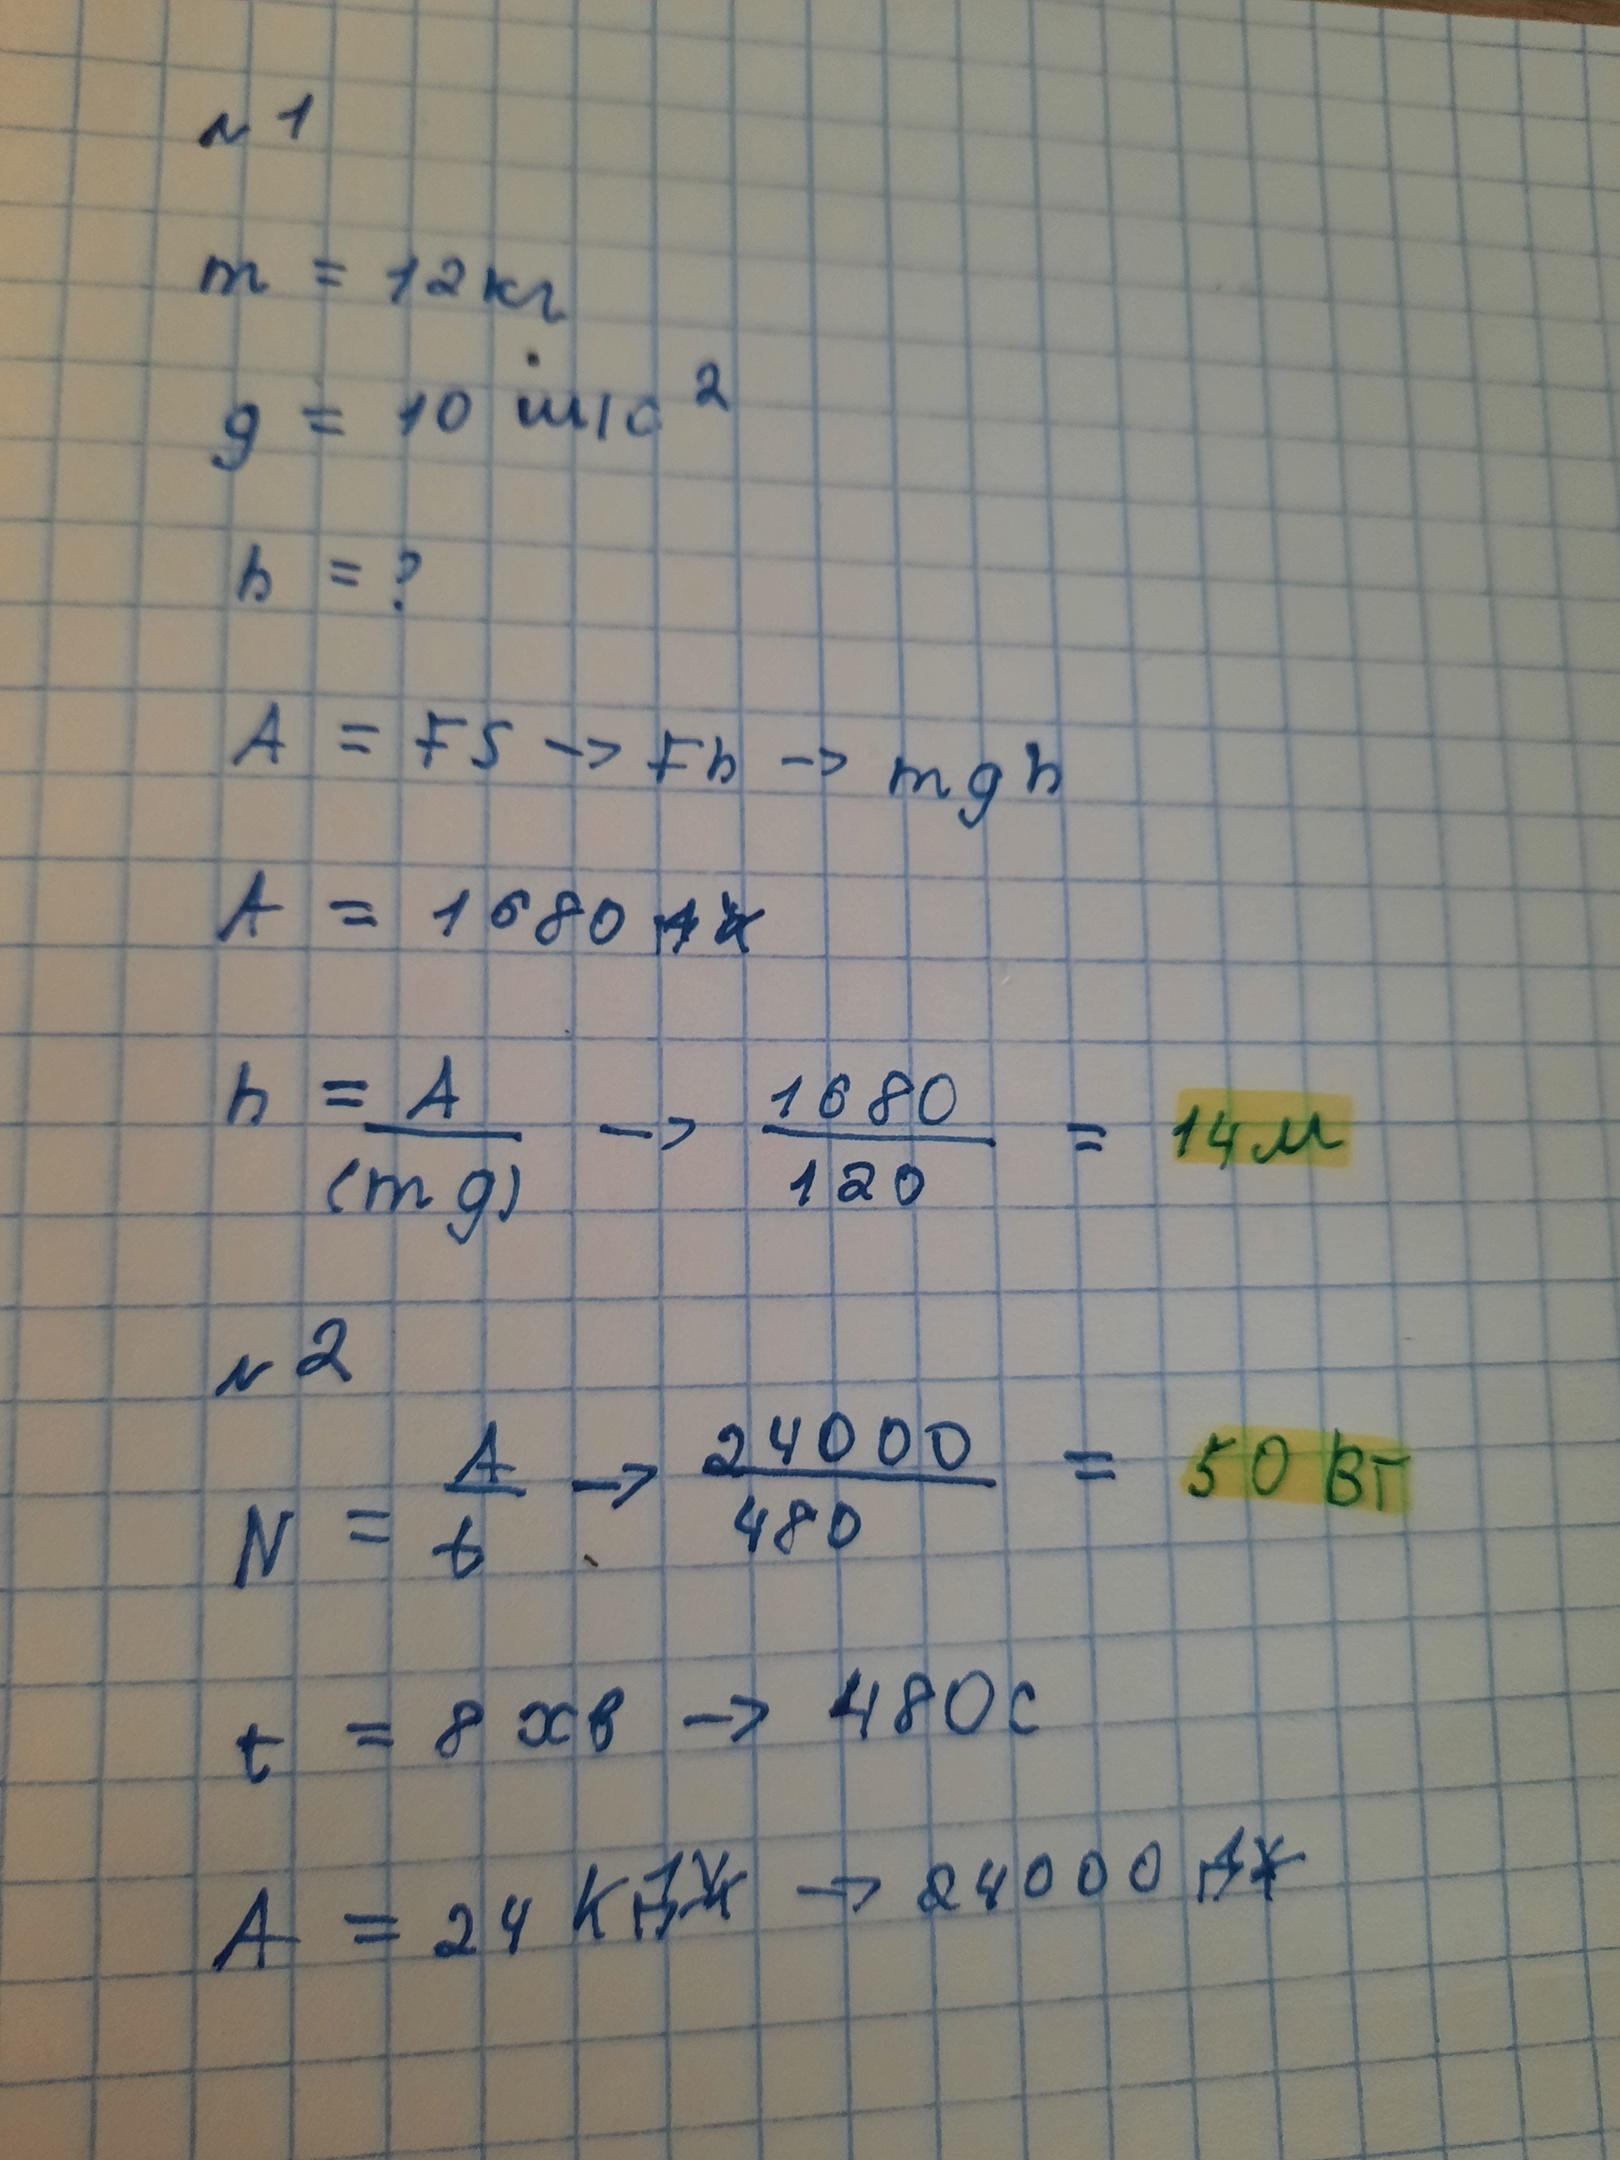 № 1
m = 12 кг
g = 10 m/c²
h = ?
A = FS -> Fh -> mgh
A = 1680 Дж
h = A/(mg) -> 1680/120 = 14 м
№ 2
N = A/t -> 24000/480 = 50 Вт
t = 8 хв -> 480 с
A = 24 кДж -> 24000 Дж